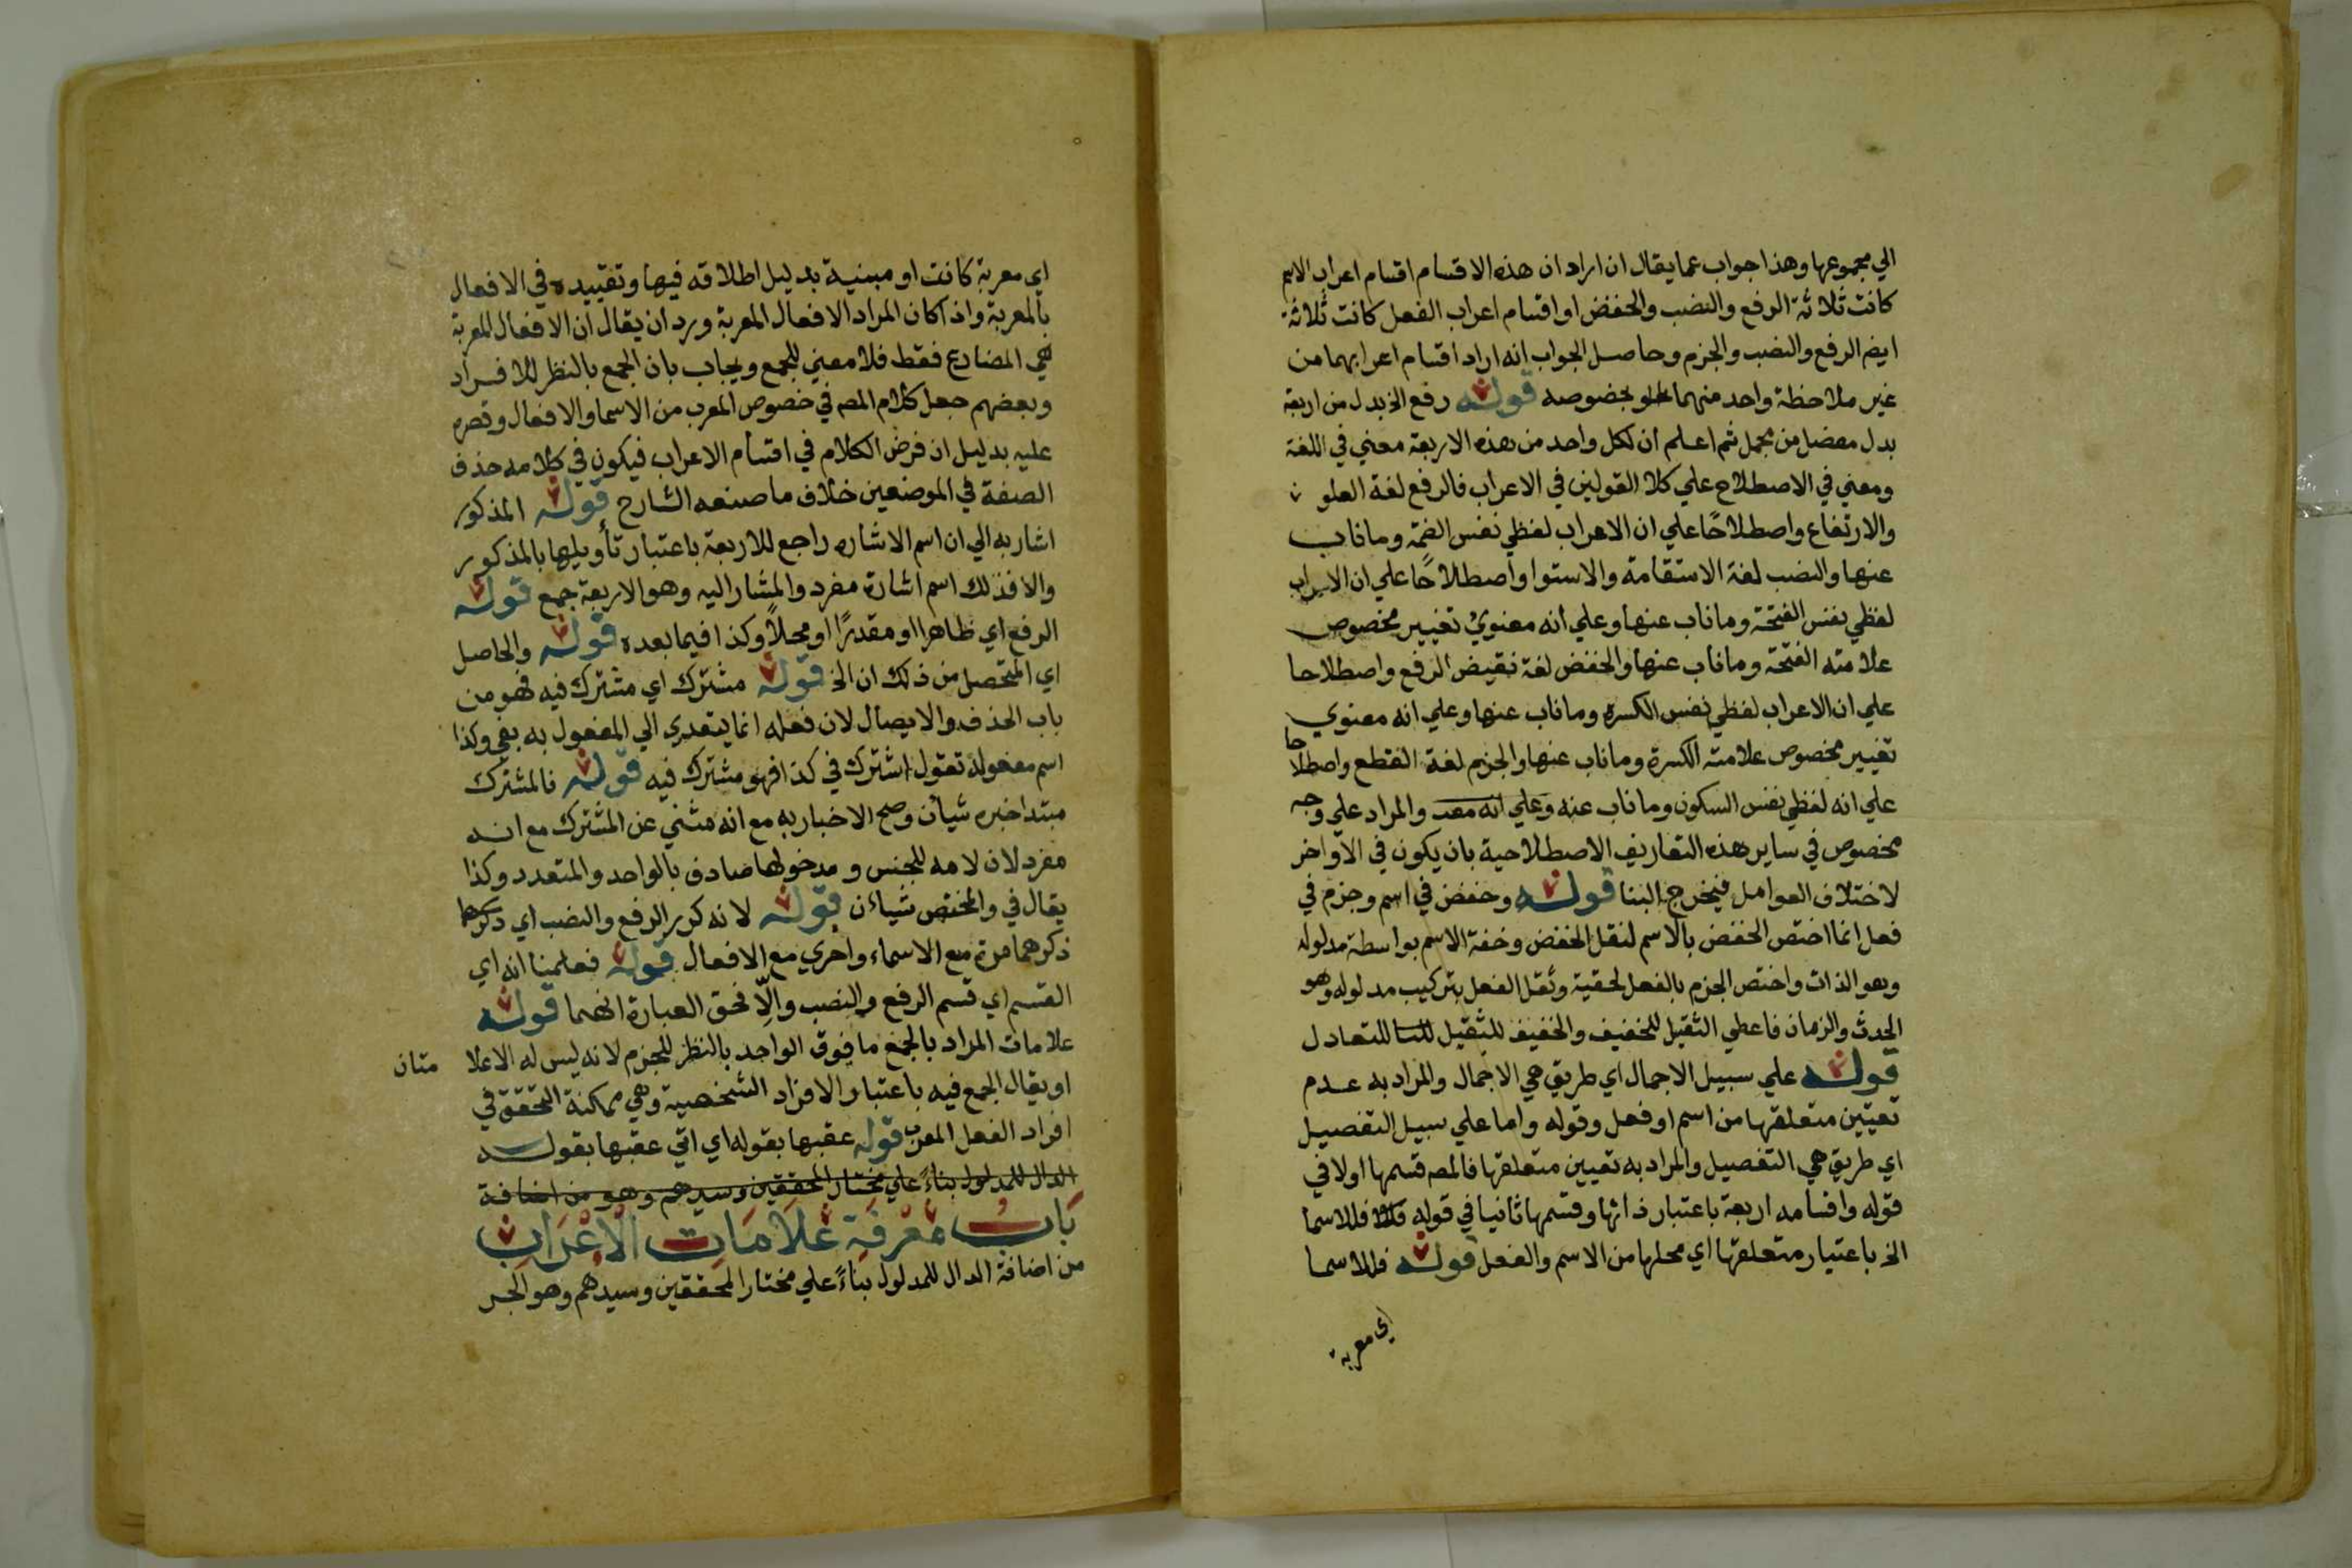 الي مجموعها وهذا جواب عما يقال ان اراد ان هذه الاقسام اقسام اعراب الاسم
كانت ثلاثة الرفع والنصب والخفض او اقسام اعراب الفعل كانت ثلاثة
ايضا الرفع والنصب والجزم وحاصل الجواب انه اراد اقسام اعرابهما من
غير ملاحظة واحد منهما بخصوصه قوله رفع الخ بدل من اربعة
بدل مفصل من مجمل ثم اعلم ان لكل واحد من هذه الاربعة معني في اللغة
ومعني في الاصطلاح علي كلا القولين في الاعراب فالرفع لغة العلو
والارتفاع واصطلاحًا علي ان الاعراب لفظي نفس الضمة وما ناب
عنها والنصب لغة الاستقامة والاستوا واصطلاحًا علي ان الاعراب
لفظي نفس الفتحة وما ناب عنها وعلي انه معنوي تغيير مخصوص
علامته الفتحة وما ناب عنها والخفض لغة نقيض الرفع واصطلاحا
علي ان الاعراب لفظي نفس الكسرة وما ناب عنها وعلي انه معنوي
تغيير مخصوص علامته الكسرة وما ناب عنها والجزم لغة القطع واصطلاحا
علي انه لفظي نفس السكون وما ناب عنه وعلي انه معنـ والمراد علي وجه
مخصوص في ساير هذه التعاريف الاصطلاحية بان يكون في الاواخر
لاختلاف العوامل فيخرج البنا قوله وخفض في اسم وجزم في
فعل انما اختص الخفض بالاسم لثقل الخفض وخفة الاسم بواسطة مدلوله
وهو الذات واختص الجزم بالفعل لخفته وثقل الفعل بتركيب مدلوله وهو
الحدث والزمان فاعطي الثقيل للخفيف والخفيف للثقيل للتعادل
قوله علي سبيل الاجمال اي طريق هي الاجمال والمراد به عدم
تعيين متعلقها من اسم او فعل وقوله واما علي سبيل التفصيل
اي طريق هي التفصيل والمراد به تعيين متعلقها فالمصه قسمها اولا في
قوله واقسامه اربعة باعتبار ذاتها وقسمها ثانيا في قوله فللاسما
الخ باعتبار متعلقها اي محلها من الاسم والفعل قوله فللاسما
اي معربة
اي معربة كانت او مبنية بدليل اطلاقه فيها وتقييده في الافعال
بالمعربة واذا كان المراد الافعال المعربة ورد ان يقال ان الافعال المعربة
هي المضارع فقط فلا معني للجمع ويجاب بان الجمع بالنظر للافراد
وبعضهم جعل كلام المصه في خصوص المعرب من الاسما والافعال وقصره
عليه بدليل ان فرض الكلام في اقسام الاعراب فيكون في كلامه حذف
الصفة في الموضعين خلاف ما صنعه الشارح قوله المذكور
اشار به الي ان اسم الاشاره راجع للاربعة باعتبار تأويلها بالمذكور
والا فذلك اسم اشارة مفرد والمشار اليه وهو الاربعة جمع قوله
الرفع اي ظاهرا او مقدرًا او محلاً وكذا فيما بعده قوله والحاصل
اي المتحصل من ذلك ان الخ قوله مشترك اي مشترك فيه فهو من
باب الحذف والايصال لان فعله انما يتعدي الي المفعول به بفي وكذا
اسم مفعوله تقول اشترك في كذا فهو مشترك فيه قوله فالمشترك
مبتدا خبره شيأن وصح الاخبار به مع انه مثني عن المشترك مع انه
مفرد لان لامه للجنس ومدخولها صادق بالواحد والمتعدد وكذا
يقال في والمختص شياءن قوله لانه كرر الرفع والنصب اي ذكرهما
ذكرهما مرة مع الاسماء واخري مع الافعال قوله فعلمنا انه اي
القسم اي قسم الرفع والنصب وإلّا فحق العبارة انهما قوله
علامات المراد بالجمع ما فوق الواحد بالنظر للجزم لانه ليس له الاعلا متان
او يقال الجمع فيه باعتبار الافراد الشخصية وهي ممكنة التحقق في
افراد الفعل المعرب قوله عقبها بقوله اي اتي عقبها بقوله
الدال للمدلول بناءً علي مختار المحققين وسيدهم وهو من اضافة
بَاب مَعْرِفَةِ عَلَامَاتِ الْاِعْرَابِ
من اضافة الدال للمدلول بناءً علي مختار المحققين وسيدهم وهو الجر